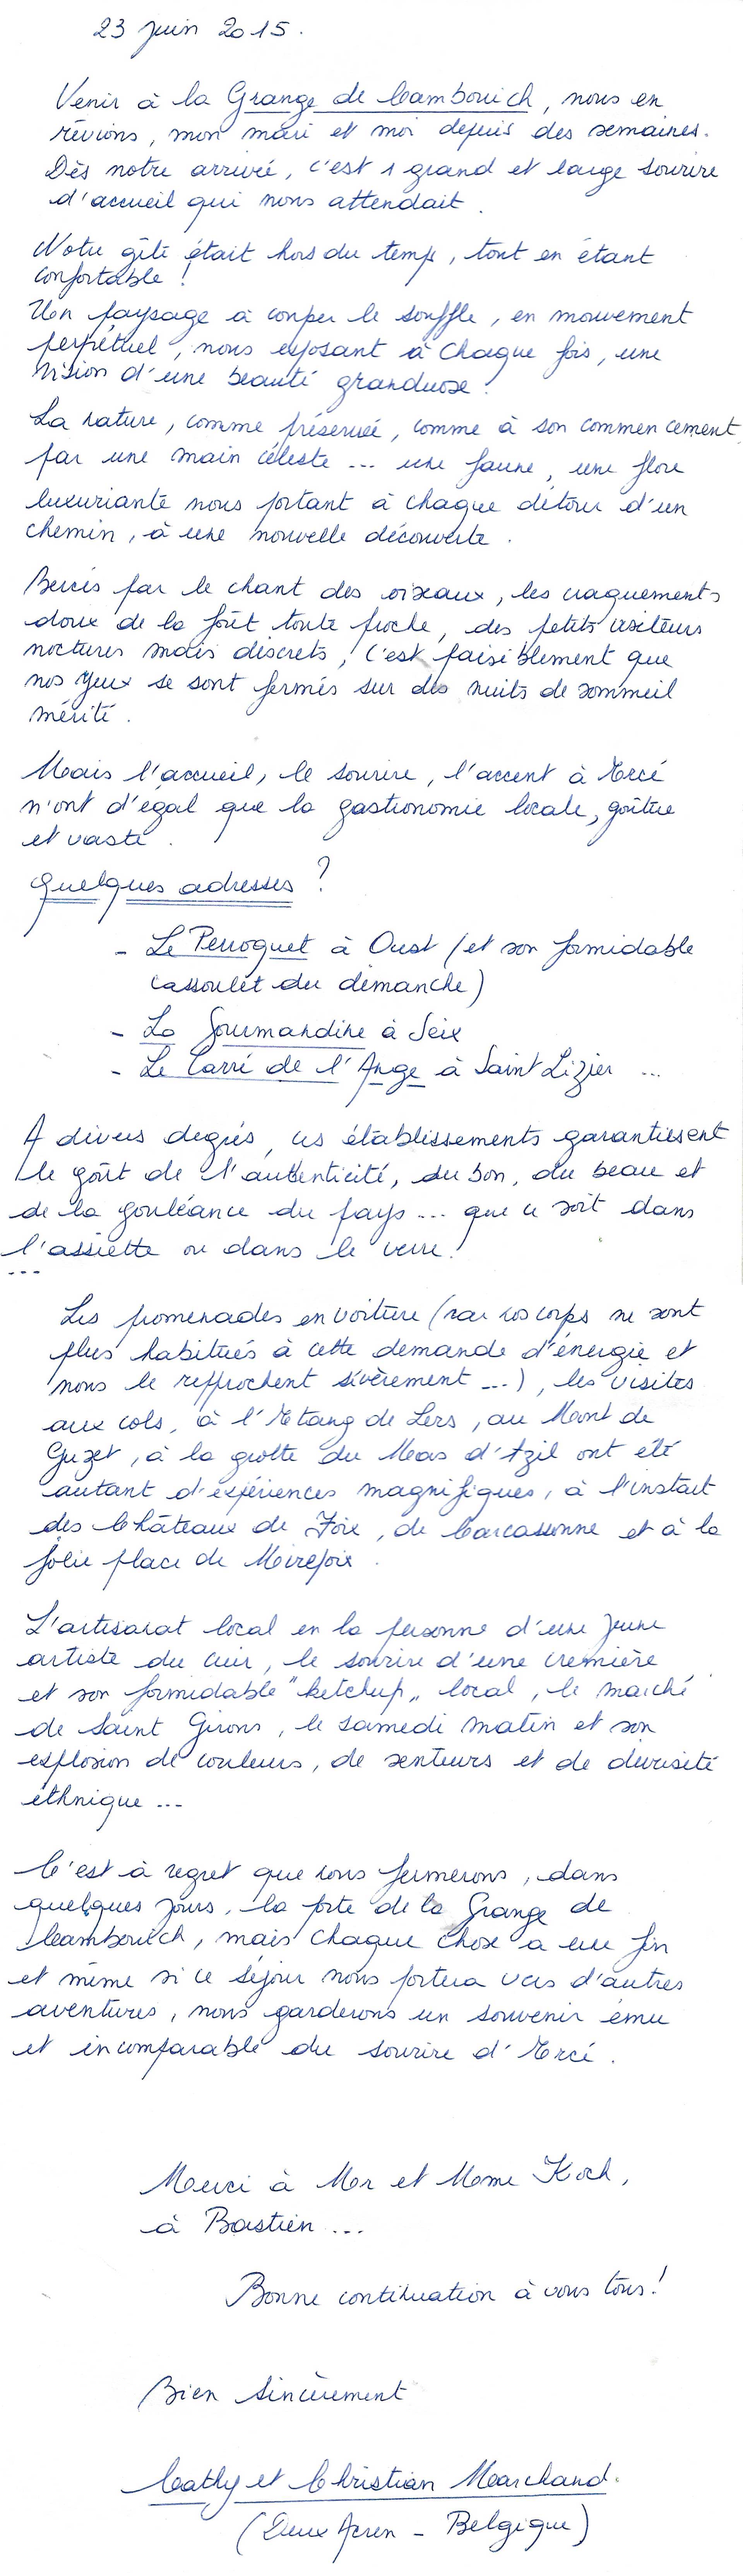 23 juin 2015.
Venir à la Grange de Cambouich, nous en
rêvions, mon mari et moi depuis des semaines.
Dès notre arrivée, c'est 1 grand et large sourire
d'accueil qui nous attendait.
Notre gîte était hors du temps, tout en étant
confortable !
Un paysage à couper le souffle, en mouvement
perpétuel, nous exposant à chaque fois, une
vision d'une beauté grandiose !
La nature, comme préservée, comme à son commencement
par une main céleste ... une faune, une flore
luxuriante nous portant à chaque détour d'un
chemin, à une nouvelle découverte.
Bercés par le chant des oiseaux, les craquements
doux de la forêt toute proche, des petits visiteurs
nocturnes mais discrets, c'est paisiblement que
nos yeux se sont fermés sur des nuits de sommeil
mérité.
Mais l'accueil, le sourire, l'accent à Ercé
n'ont d'égal que la gastronomie locale, goûtue
et vaste.
Quelques adresses ?
- Le Perroquet à Oust (et son formidable
cassoulet du dimanche)
- La Gourmandine à Seix
- Le Carré de l'Ange à Saint Lizier ...
A divers degrés, ces établissements garantissent
le goût de l'authenticité, du bon, du beau et
de la gouléance du pays ... que ce soit dans
l'assiette ou dans le verre !
...
Les promenades en voiture (car nos corps ne sont
plus habitués à cette demande d'énergie et
nous le reprochent sévèrement ...), les visites
aux cols, à l'Etang de Lers, au Mont de
Guzet, à la grotte du Mas d'Azil ont été
autant d'expériences magnifiques, à l'instart
des Châteaux de Foix, de Carcassonne et à la
jolie place de Mirepoix.
L'artisanat local en la personne d'une jeune
artiste du cuir, le sourire d'une crémière
et son formidable "ketchup" local, le marché
de Saint Girons, le samedi matin et son
explosion de couleurs, de senteurs et de diversité
éthnique ...
C'est à regret que nous fermerons, dans
quelques jours, la porte de la Grange de
Cambouich, mais chaque chose a une fin
et même si ce séjour nous portera vers d'autres
aventures, nous garderons un souvenir ému
et incomparable du sourire d'Ercé.
Merci à Mr et Mme Koch,
à Bastien ...
Bonne continuation à vous tous !
Bien sincèrement
Cathy et Christian Marchand.
(Deux Acren - Belgique)